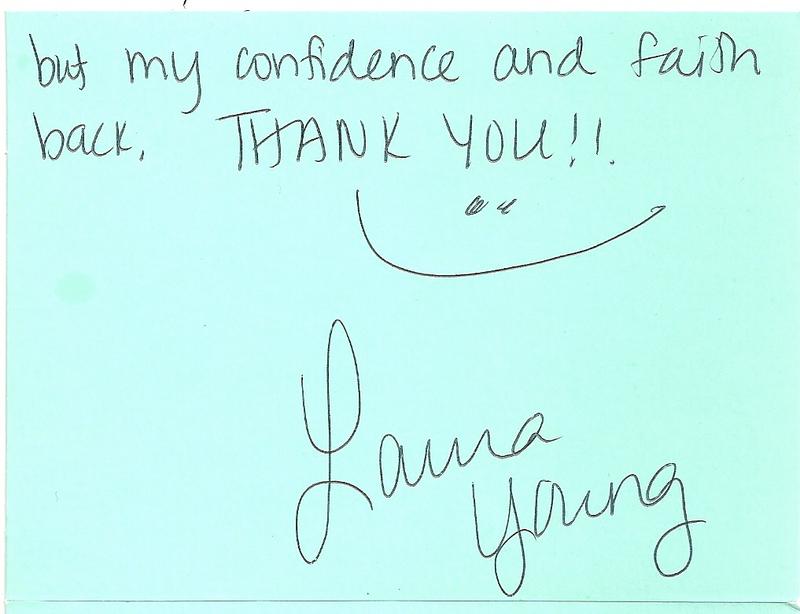 but my confidence and faith
back. THANK YOU!!
Laura
Young